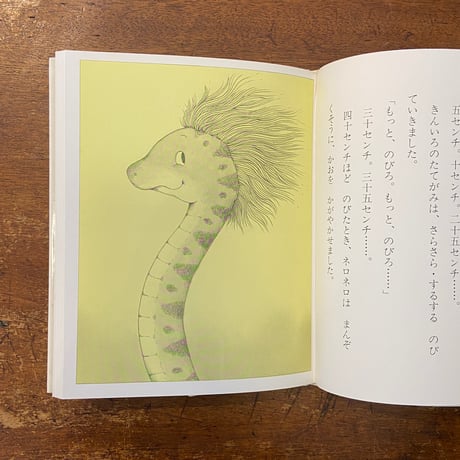 五センチ。十センチ。二十五センチ……。
きんいろのたてがみは、さらさら・するする　のび
ていきました。
「もっと、のびろ。もっと、のびろ……」
三十センチ。三十五センチ……。
四十センチほど　のびたとき、ネロネロは　まんぞ
くそうに、かおを　かがやかせました。